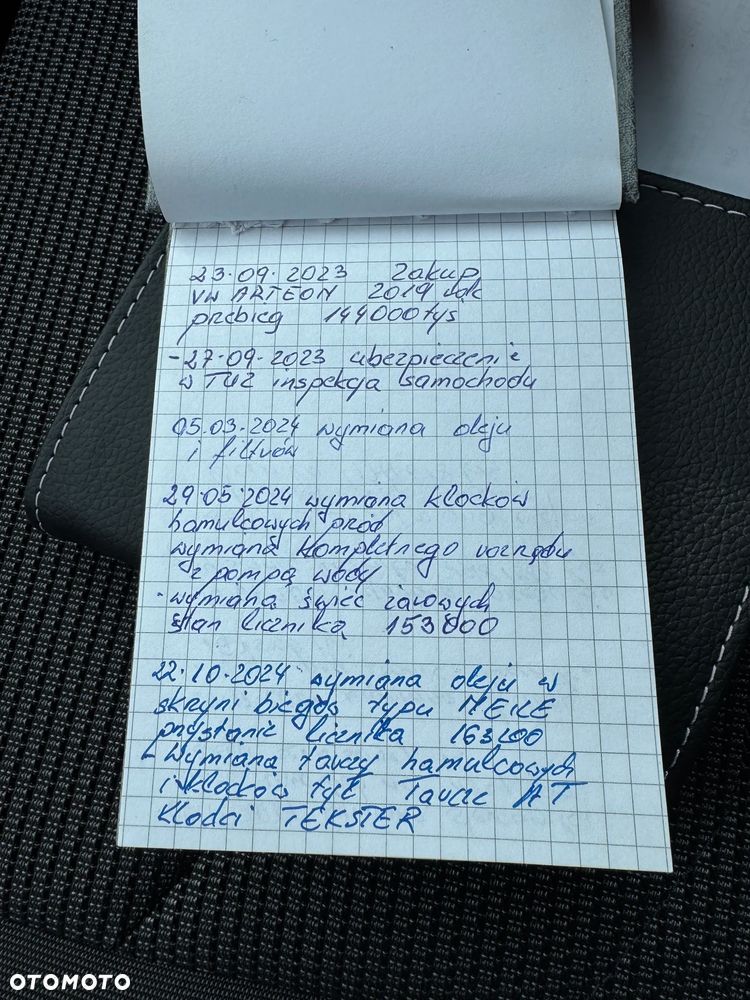 23.09.2023 Zakup
VW ARTEON 2019 rok
przebieg 144000 tyś
-27.09.2023 ubezpieczenie
w TUZ inspekcja samochodu
05.03.2024 wymiana oleju
i filtrów
29.05.2024 wymiana klocków
hamulcowych przód
wymiana kompletnego rozrządu
z pompą wody
- wymianą świec żarowych
stan licznika 153000
22.10.2024 wymiana oleju w
skrzyni biegów typu MEILE
przy stanie licznika 163200
- Wymiana tarczy hamulcowych
i klocków tył Tarcze AT
Klocki TEKSTER
OTOMOTO